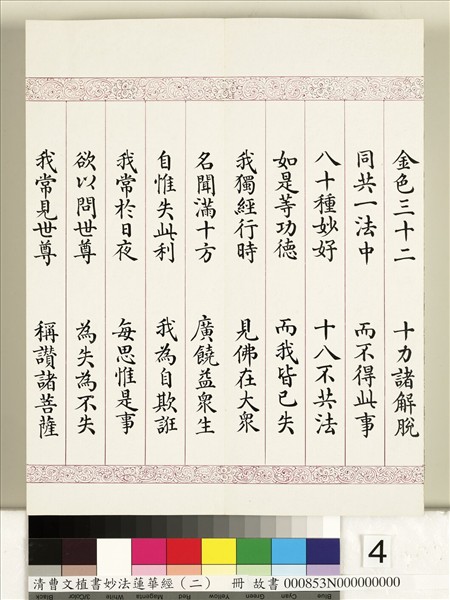 金色三十二　十力諸解脫
同共一法中　而不得此事
八十種妙好　十八不共法
如是等功德　而我皆已失
我獨經行時　見佛在大眾
名聞滿十方　廣饒益眾生
自惟失此利　我為自欺誑
我常於日夜　每思惟是事
欲以問世尊　為失為不失
我常見世尊　稱讚諸菩薩
4
Black 3/Color White Magenta Red Yellow Green Cyan Blue
清曹文植書妙法蓮華經（二）　冊 故書 000853N000000000